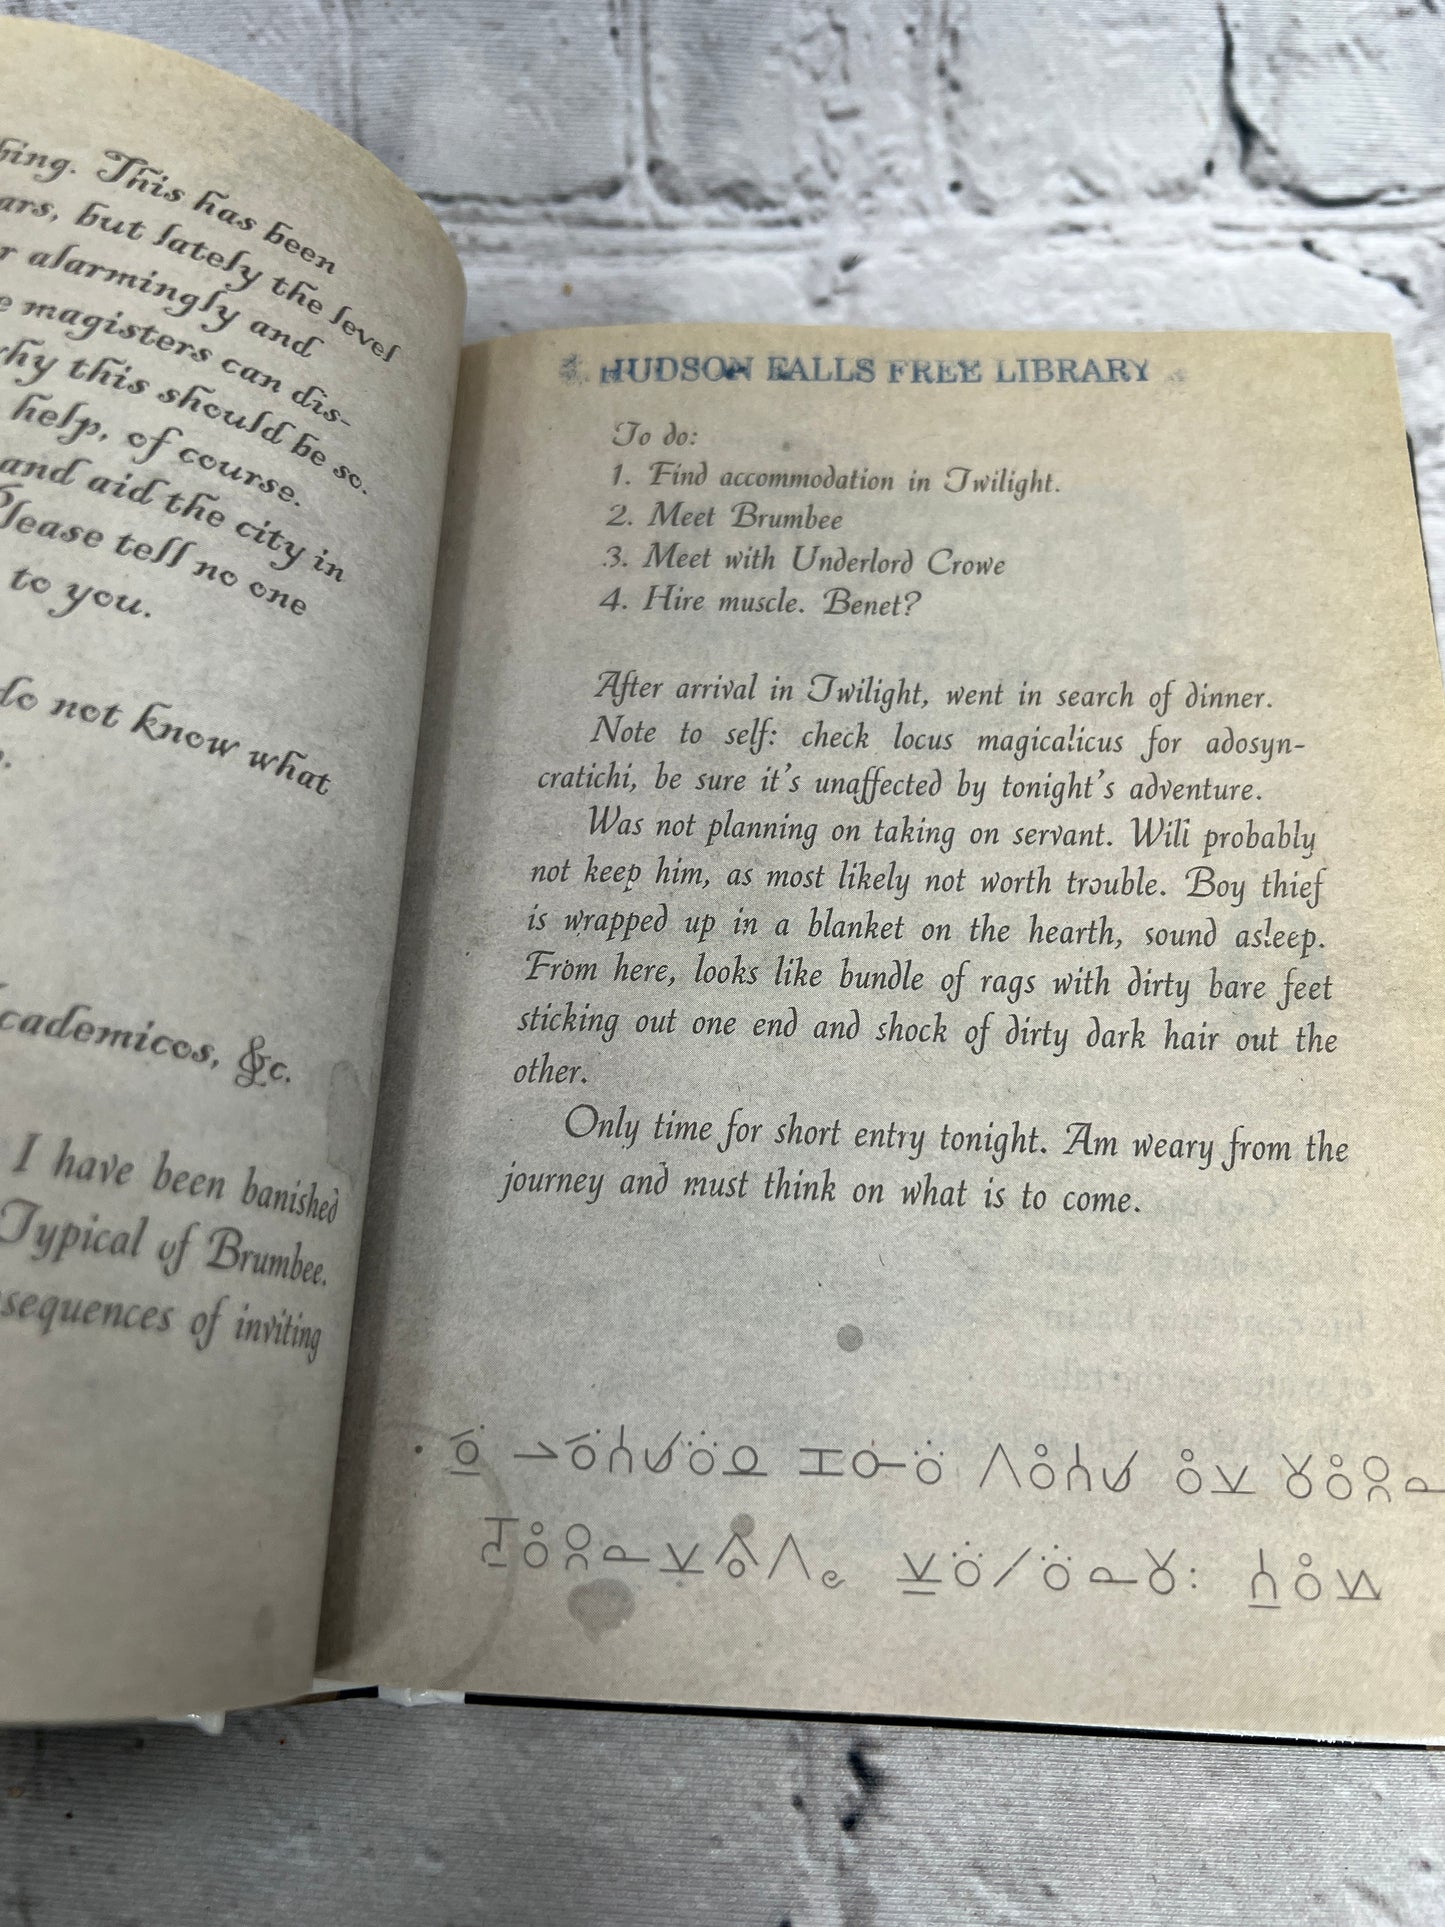 This has been
but lately the level
alarmingly and
magisters can dis-
this should be so.
help, of course.
and aid the city in
Please tell no one
to you.
do not know what
&c.
I have been banished
Typical of Brumbee.
of inviting
HUDSON FALLS FREE LIBRARY
To do:
1. Find accommodation in Twilight.
2. Meet Brumbee
3. Meet with Underlord Crowe
4. Hire muscle. Benet?
After arrival in Twilight, went in search of dinner.
Note to self: check locus magicalicus for adosyn-
cratichi, be sure it's unaffected by tonight's adventure.
Was not planning on taking on servant. Will probably
not keep him, as most likely not worth trouble. Boy thief
is wrapped up in a blanket on the hearth, sound asleep.
From here, looks like bundle of rags with dirty bare feet
sticking out one end and shock of dirty dark hair out the
other.
Only time for short entry tonight. Am weary from the
journey and must think on what is to come.